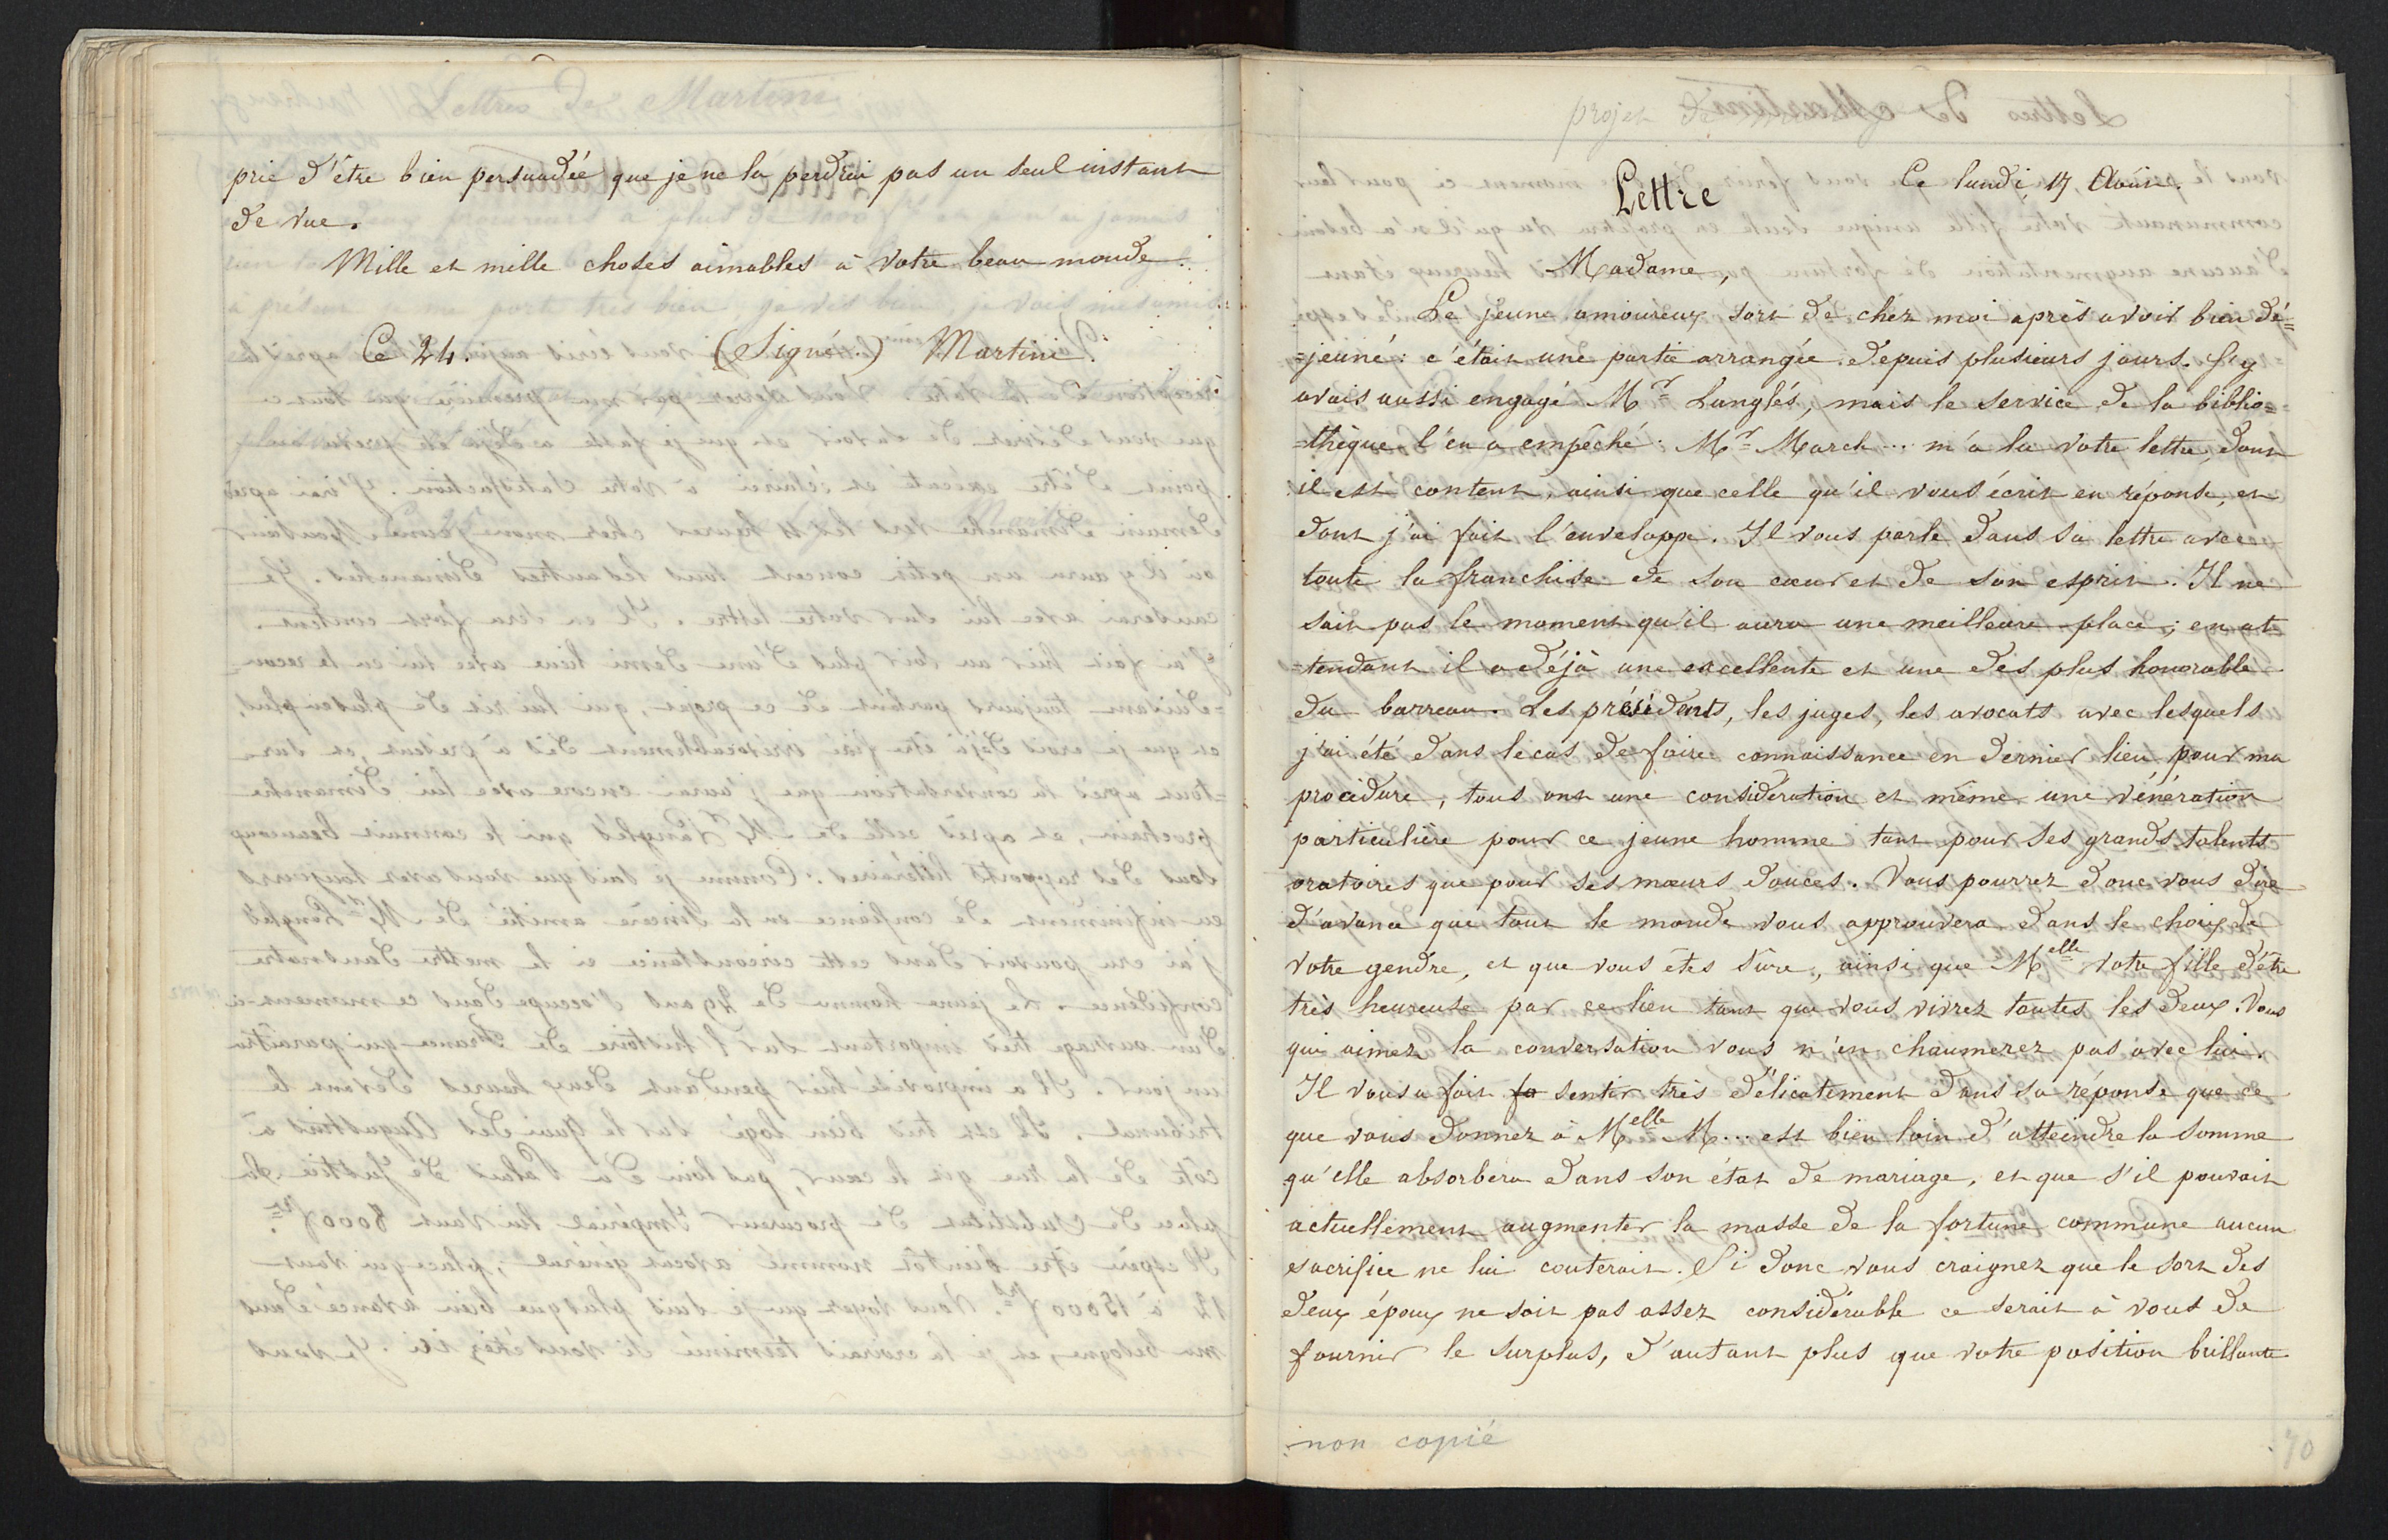 Lettres de Martini
prie d'être bien persuadée que je ne la perdrai pas un seul instant
de vue.
Mille et mille choses aimables à votre beau monde.
Ce 24. (Signé:) Martini.
projet de
Lettre Ce lundi 17 Août.
Madame,
Le jeune amoureux sort de chez moi après avoir bien dé=
=jeuné: c'était une partie arrangée depuis plusieurs jours. J'y
avais aussi engagé Mr Langlés, mais le service de la biblio=
=thèque l'en a empêché. Mr March... m'a lu votre lettre, dont
il est content, ainsi que celle qu'il vous écrit en réponse, et
dont j'ai fait l'enveloppe. Il vous parle dans sa lettre avec
toute la franchise de son cœur et de son esprit. Il ne
sait pas le moment qu'il aura une meilleure place; en at
=tendant il a déjà une excellente et une des plus honorable
du barreau. Les présidents, les juges, les avocats avec lesquels
j'ai été dans le cas de faire connaissance en dernier lieu pour ma
procédure, tous ont une considération et même une vénération
particulière pour ce jeune homme tant pour ses grands talents
oratoires que pour ses mœurs douces. Vous pourrez donc vous dire
d'avance que tout le monde vous approuvera dans le choix de
votre gendre, et que vous êtes sûre, ainsi que Melle votre fille d'être
très heureuse par ce lien tant que vous vivrez toutes les deux. Vous
qui aimez la conversation vous n'en chaumerez pas avec lui.
Il vous a fait fa sentir très délicatement dans sa réponse que ce
que vous donnez à Melle M... est bien loin d'atteindre la somme
qu'elle absorbera dans son état de mariage, et que s'il pouvait
actuellement augmenter la masse de la fortune commune aucun
sacrifice ne lui couterait. Si donc vous craignez que le sort des
deux époux ne soit pas assez considérable ce serait à vous de
fournir le surplus, d'autant plus que votre position brillante
non copié
70